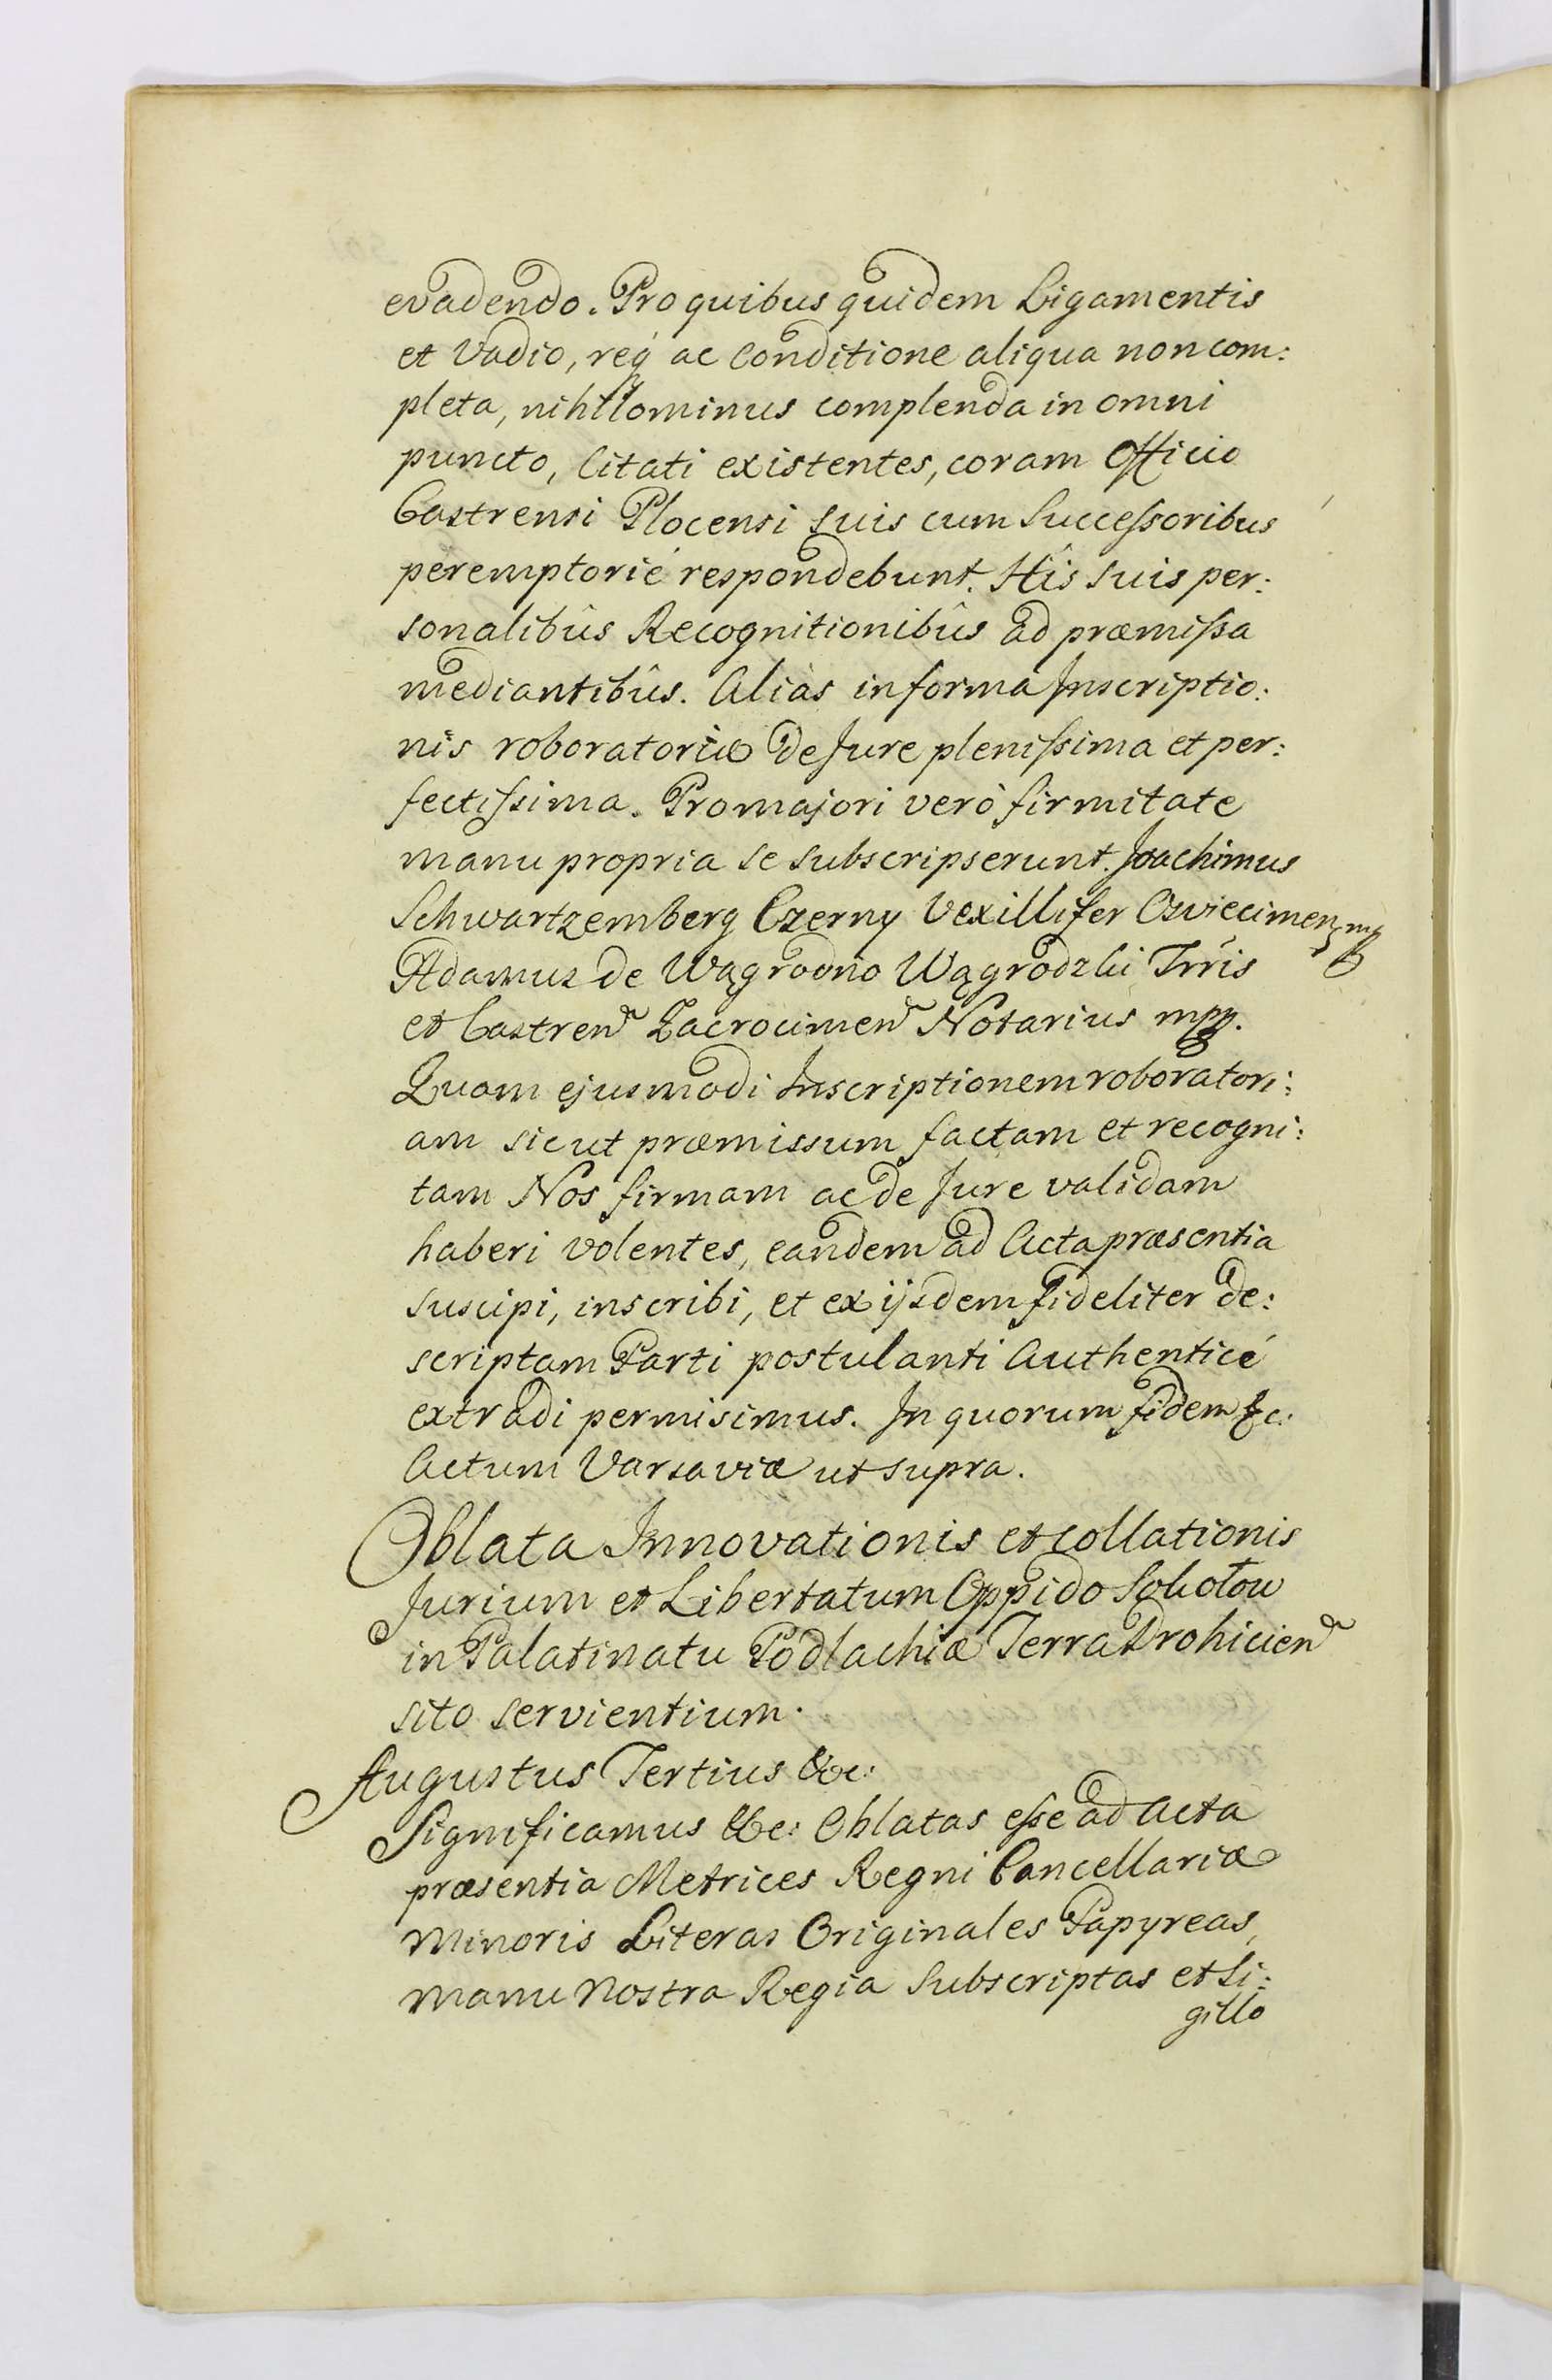 evadendo. Pro quibus quidem Ligamentis
et Vadio, req́ ac Conditione aliqua non com:
pleta, nihilominus complenda in omni
puncto, Citati existentes, coram Officio
Castrensi Plocensi suis cum Succeſsoribus
peremptorié respondebunt. His suis per:
sonalibûs Recognitionibûs ad præmiſsa
mediantibûs. Aliàs in forma Inscriptio:
nis roboratoriæ de Jure pleniſsima et per:
fectiſsima. Pro majori verò firmitate
manu propria se subscripserunt. Joachimus
Schwartzemberg Czerny Vexillifer Osviecimen mp
Adamus de Wągrodno Wągrodzki Trris
et Castren Zacrocimen Notarius mpp.
Quam ejusmodi Inscriptionem roboratori:
am sicut præmissum factam et recogni:
tam Nos firmam ac de Jure validam
haberi volentes, eandem ad Acta præsentia
suscipi, inscribi, et ex ijsdem fideliter de:
scriptam Parti postulanti Authenticé
extradi permisimus. In quorum fidem &c:
Actum Varsaviæ ut supra.
Oblata Innovationis et collationis
Jurium et Libertatum Oppido Sokołow
in Palatinatu Podlachiæ Terra Drohicien
sito servientium.
Augustus Tertius &c:
Significamus &c: Oblatas eſse ad Acta
præsentia Metrices Regni Cancellariæ
Minoris Literas Originales Papyreas,
manu Nostra Regia Subscriptas et Si:
gillo